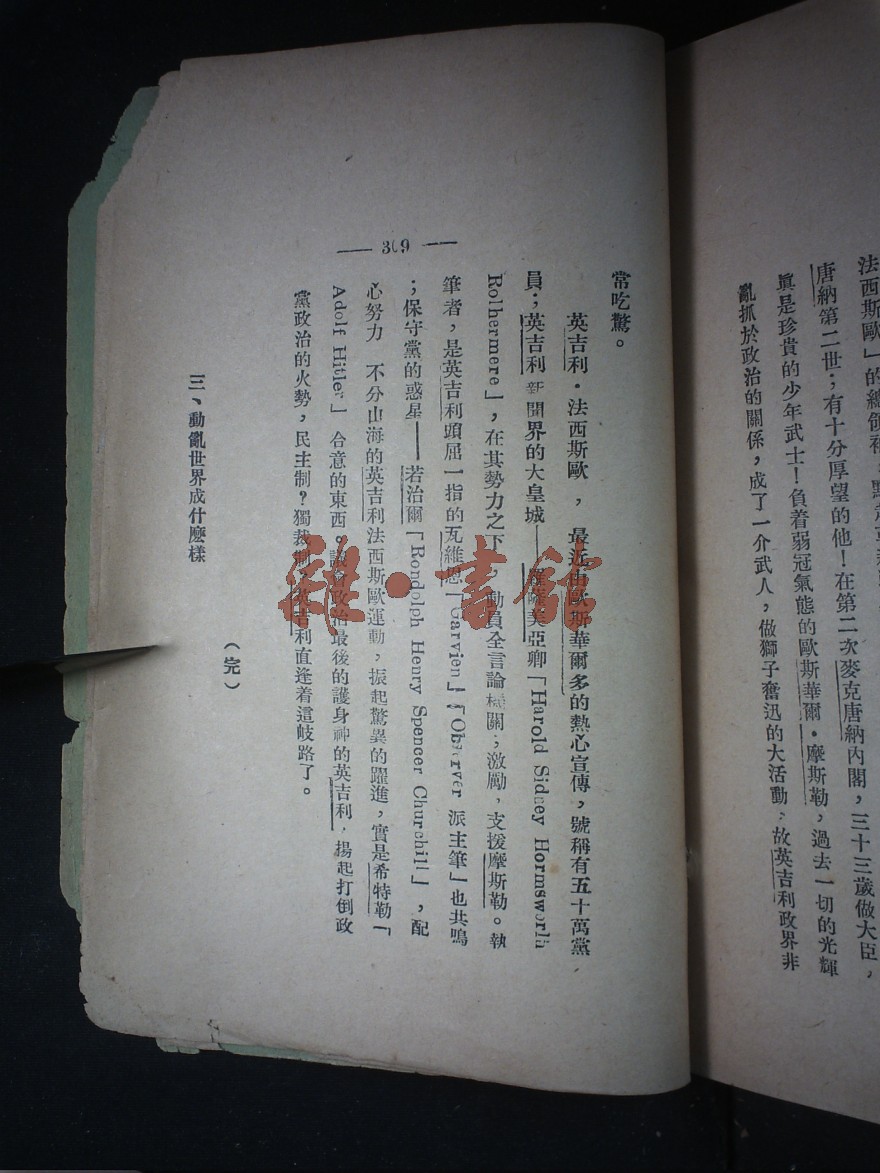 法西斯歐」的總領袖
唐納第二世；有十分厚望的他！在第二次麥克唐納內閣，三十三歲做大臣，
眞是珍貴的少年武士！負着弱冠氣態的歐斯華爾・摩斯勒，過去一切的光輝
亂抓於政治的關係，成了一介武人，做獅子奮迅的大活動，故英吉利政界非
常吃驚。
英吉利・法西斯歐，最近由歐斯華爾多的熱心宣傳，號稱有五十萬黨
員；英吉利新聞界的大皇城——羅薩美亞卿「Harold Sidney Hormsworth
Rolhermere」，在其勢力之下，動員全言論機關；激勵，支援摩斯勒。執
筆者，是英吉利頭屈一指的瓦維恩「Garvien」「Observer 派主筆」也共鳴
；保守黨的惑星——若治爾「Rondolph Henry Spencer Churchill」，配
心努力 不分山海的英吉利法西斯歐運動，振起驚異的躍進，實是希特勒「
Adolf Hitler」合意的東西。議會政治最後的護身神的英吉利，揚起打倒政
黨政治的火勢，民主制？獨裁制，英吉利直逢着這岐路了。
（完）
三、動亂世界成什麼樣
— 309 —
雜・書館